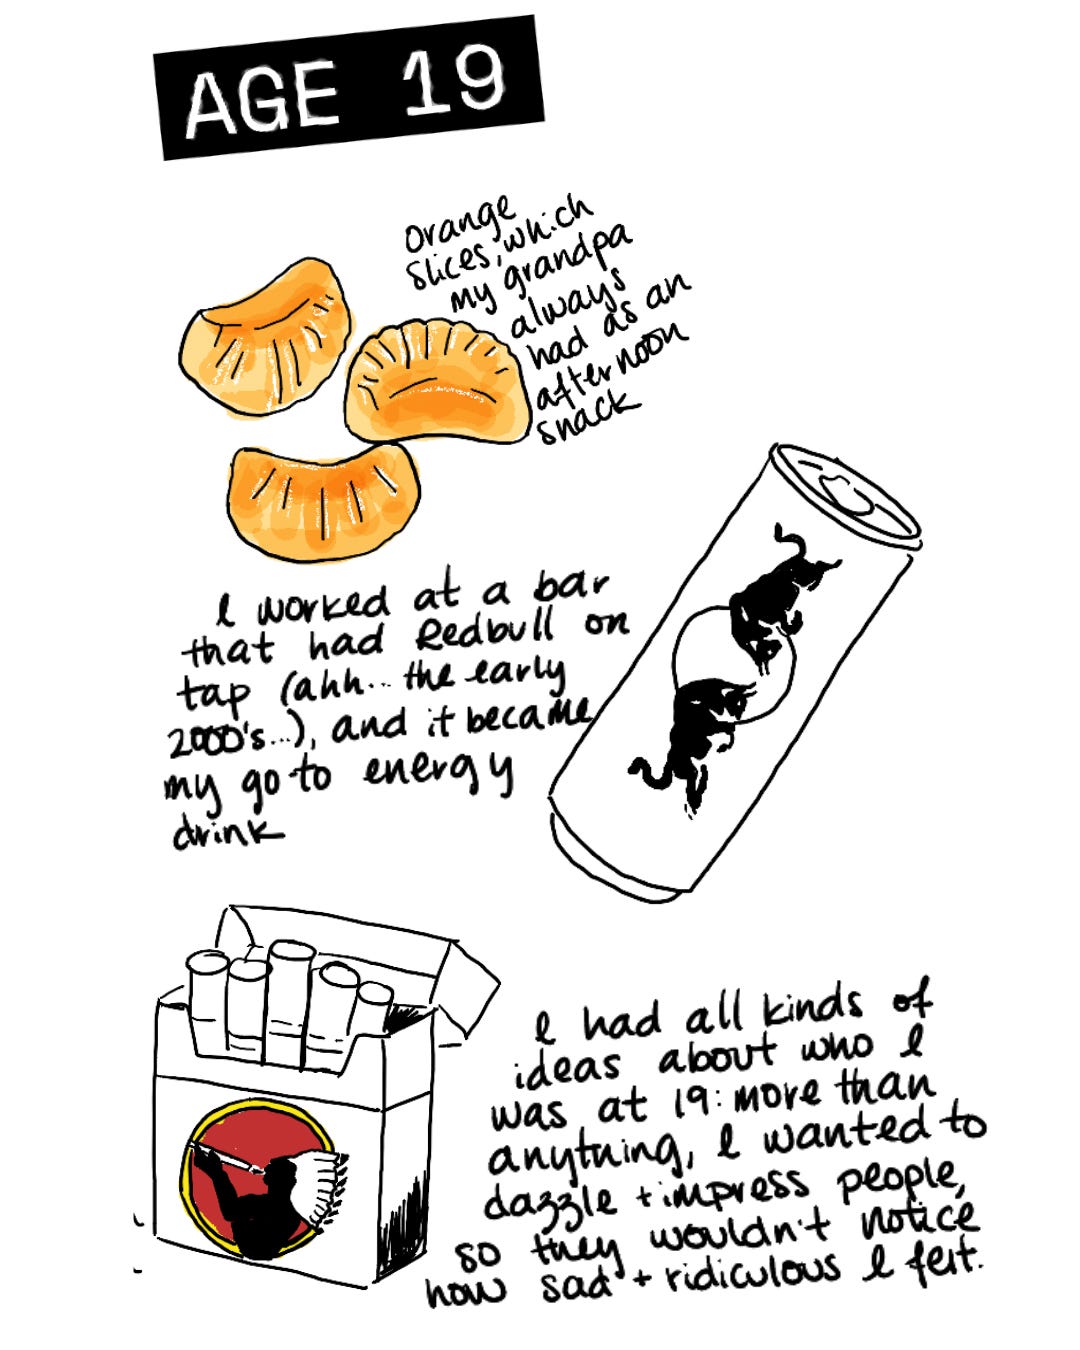 AGE 19
Orange
slices, which
my grandpa
always
had as an
afternoon
snack
I worked at a bar
that had Redbull on
tap (ahh... the early
2000's...), and it became
my go to energy
drink
I had all kinds of
ideas about who I
was at 19: more than
anything, I wanted to
dazzle + impress people,
so they wouldn't notice
how sad + ridiculous I felt.